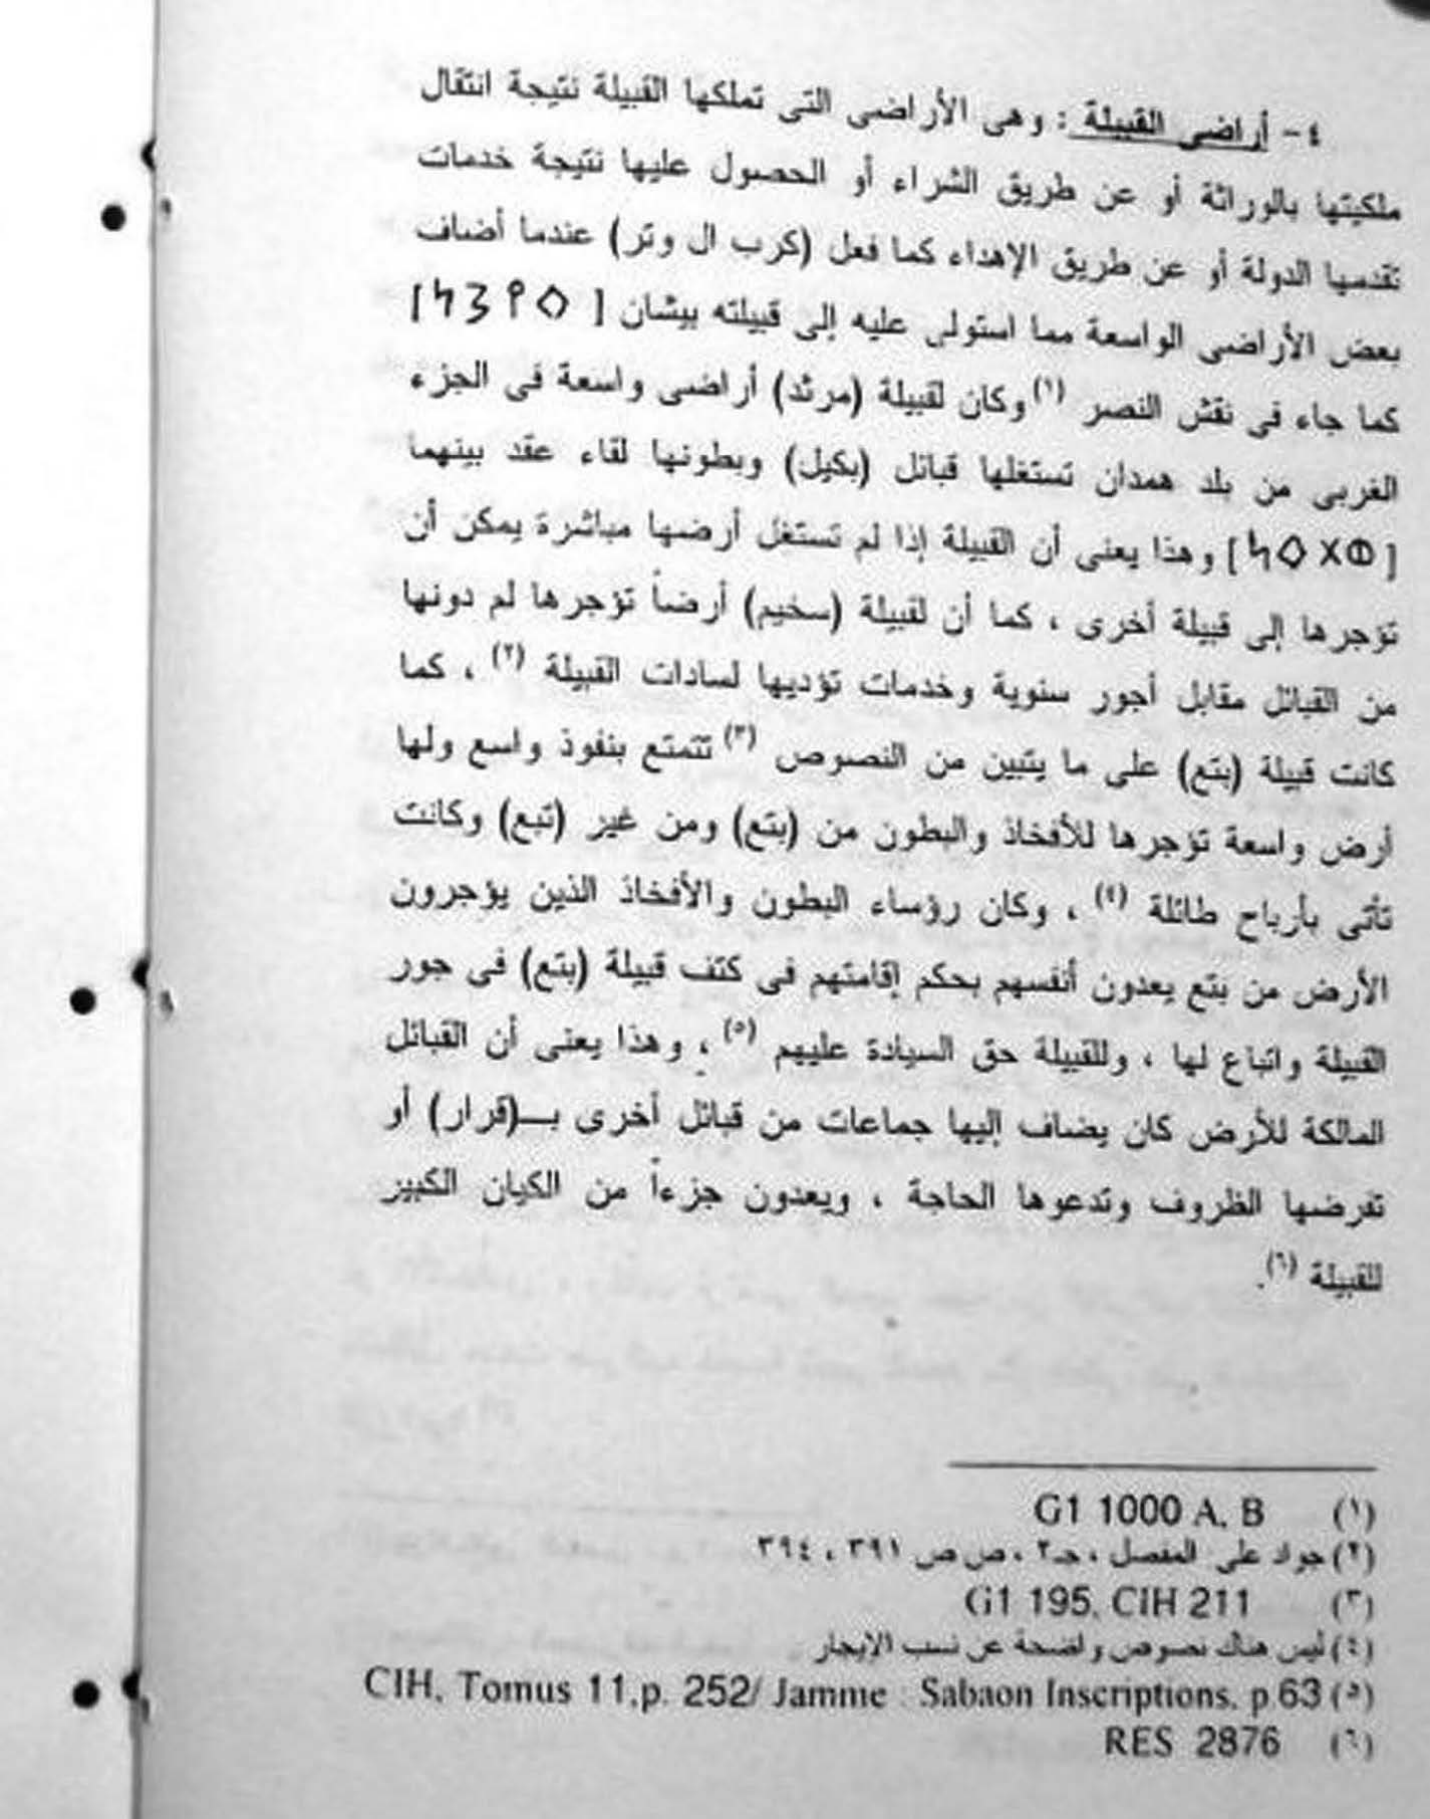 ٤- أراضى القبيلة : وهى الأراضى التى تملكها القبيلة نتيجة انتقال
ملكيتها بالوراثة أو عن طريق الشراء أو الحصول عليها نتيجة خدمات
تقدمها الدولة أو عن طريق الإهداء كما فعل (كرب ال وتر) عندما أضاف
بعض الأراضى الواسعة مما استولى عليه إلى قبيلته بيشان [ ]
كما جاء فى نقش النصر (١) وكان لقبيلة (مرثد) أراضى واسعة فى الجزء
الغربى من بلد همدان تستغلها قبائل (بكيل) وبطونها لقاء عقد بينهما
[𐩥𐩩𐩰𐩬] وهذا يعنى أن القبيلة إذا لم تستغل أرضها مباشرة يمكن أن
تؤجرها إلى قبيلة أخرى ، كما أن لقبيلة (سخيم) أرضاً تؤجرها لم دونها
من القبائل مقابل أجور سنوية وخدمات تؤديها لسادات القبيلة (٢) ، كما
كانت قبيلة (بتع) على ما يتبين من النصوص (٣) تتمتع بنفوذ واسع ولها
أرض واسعة تؤجرها للأفخاذ والبطون من (بتع) ومن غير (تبع) وكانت
تأتى بأرباح طائلة (٤) ، وكان رؤساء البطون والأفخاذ الذين يؤجرون
الأرض من بتع يعدون أنفسهم بحكم إقامتهم فى كتف قبيلة (بتع) فى جور
القبيلة واتباع لها ، وللقبيلة حق السيادة عليهم (٥) ، وهذا يعنى أن القبائل
المالكة للأرض كان يضاف إليها جماعات من قبائل أخرى بـ(قرار) أو
تفرضها الظروف وتدعوها الحاجة ، ويعدون جزءاً من الكيان الكبير
للقبيلة (٦).
(١) G1 1000 A, B
(٢) جواد على المفصل ، جـ٢ ، ص ص ٣٩١ ، ٣٩٤
(٣) G1 195, CIH 211
(٤) ليس هناك نصوص واضحة عن نسب الايجار .
(٥) CIH, Tomus 11,p. 252/ Jamme : Sabaon Inscriptions, p 63
(٦) RES 2876